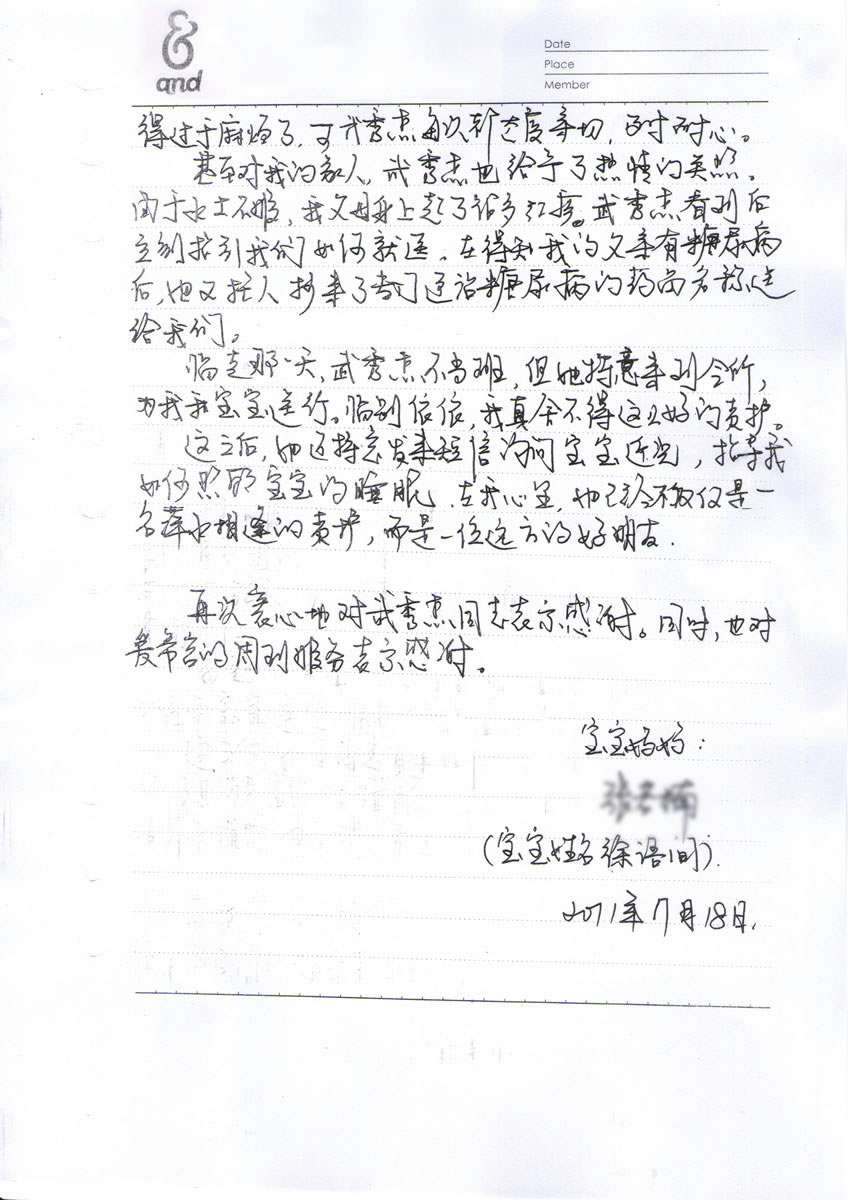 &
and
Date
Place
Member
得过于麻烦了，可武秀杰每次都态度亲切，百时耐心。
甚至对我的家人，武秀杰也给予了热情的关照。
由于水土不服，我父母身上起了许多红疹。武秀杰看到后
立刻指引我们如何就医，在得知我的父亲有糖尿病
后，她又托人抄来了专门医治糖尿病的药品名称送
给我们。
临走那一天，武秀杰不当班，但她特意来到会所，
为我和宝宝送行。临别依依，我真舍不得这么好的责护。
这之后，她还特意发来短信询问宝宝近况，指导我
如何照顾宝宝的睡眠，在我心里，她已经不仅仅是一
名萍水相逢的责护，而是一位远方的好朋友.
再次衷心地对武秀杰同志表示感谢。同时，也对
爱帝宫的周到服务表示感谢。
宝宝妈妈：
（宝宝姓名 徐语).
2011年7月18日.